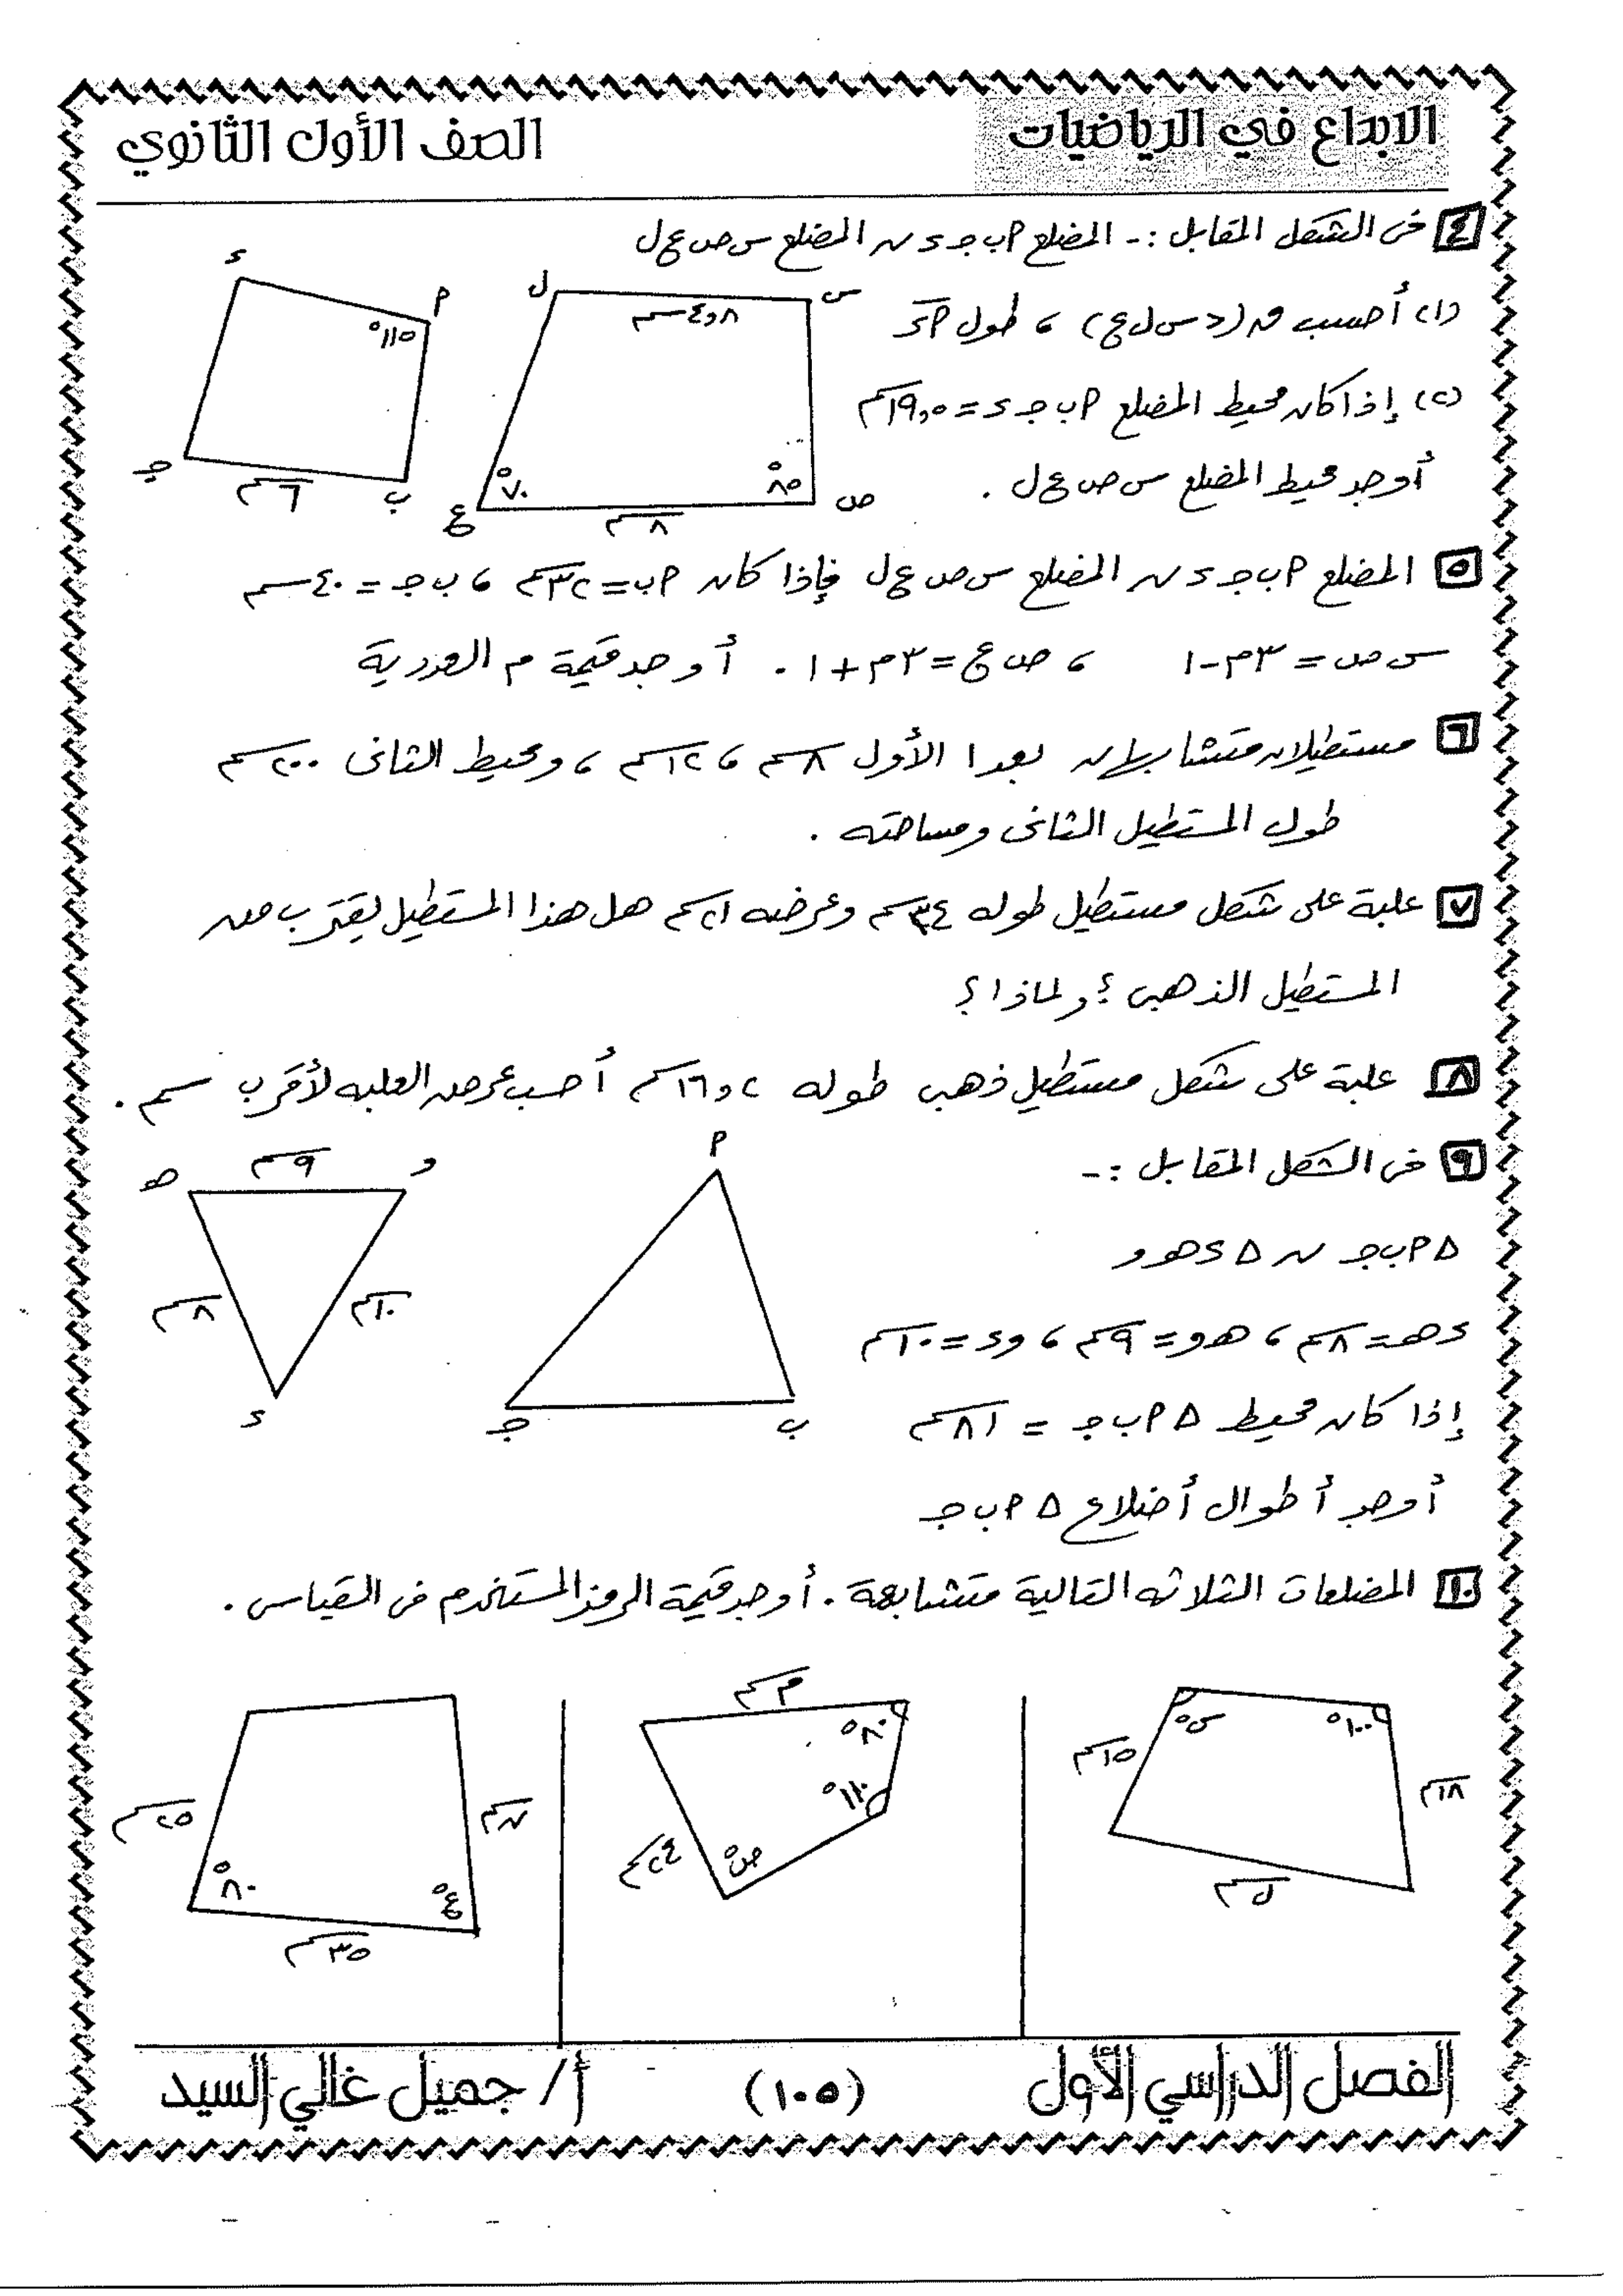 الابداع في الرياضيات
الصف الأول الثانوي
٤ فى الشكل المقابل :- المضلع ٢ب جـ ء ~ المضلع س ص ع ل
(١) أحسب ق(> س ل ع) ، طول ٢ء
(٢) إذا كان محيط المضلع ٢ب جـ ء = ١٩,٥ سم
أوجد محيط المضلع س ص ع ل .
ء
٢
١١٥°
جـ
٦ سم
ب
ل
س
٤,٨ سم
٧٠°
٨٥°
ع
٨ سم
ص
٥ المضلع ٢ب جـ ء ~ المضلع س ص ع ل فإذا كان ٢ب = ٣٢ سم ، ب جـ = ٤٠ سم
س ص = ٣م - ١ ، ص ع = ٣م + ١ . أوجد قيمة م العددية
٦ مستطيلان متشابهان بعدا الأول ٨ سم ، ١٢ سم ، ومحيط الثانى ٢٠٠ سم
طول المستطيل الثانى ومساحته .
٧ علبة على شكل مستطيل طوله ٣٤ سم وعرضه ٢١ سم هل هذا المستطيل يقترب من
المستطيل الذهبى ؟ ولماذا ؟
٨ علبة على شكل مستطيل ذهبى طوله ١٦,٢ سم أحسب عرض العلبه لأقرب سم .
٩ فى الشكل المقابل :-
∆ ٢ب جـ ~ ∆ ء هـ و
ء هـ = ٨ سم ، هـ و = ٩ سم ، و ء = ١٠ سم
إذا كان محيط ∆ ٢ب جـ = ٨١ سم
أوجد أطوال أضلاع ∆ ٢ب جـ
هـ
٩ سم
و
٨ سم
١٠ سم
ء
٢
جـ
ب
١٠ المضلعات الثلاثه التالية متشابهة . أوجد قيمة الرمز المستخدم فى القياس .
س°
١٠٠°
١٥ سم
١٨ سم
ل سم
م سم
٨٠°
١١٠°
ص°
٢٤ سم
٢٥ سم
ن سم
٨٠°
ع°
٣٥ سم
الفصل الدراسي الأول
(١٠٥)
أ/ جميل غالي السيد